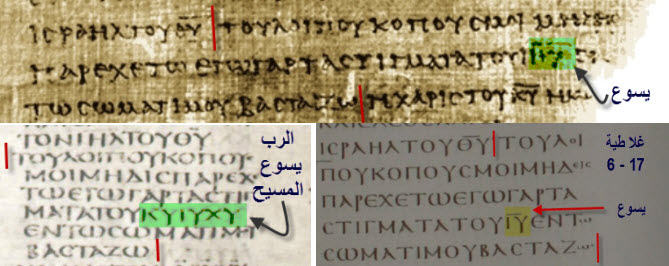 ΙϹΡΑΗΛΤΟΥΘ̅Υ̅ ΤΟΥΛΟΙΠΟΥΚΟΠΟΥϹΜΟΙ ΜΗΔΕ
ΠΑΡΕΧΕΤΩΕΓΩΓΑΡΤΑϹΤΙΓΜΑΤΑΤΟΥΙ̅Η̅Υ̅ ΕΝ
ΤΩϹΩΜΑΤΙΜΟΥΒΑϹΤΑΖΩ ΗΧΑΡΙϹΤΟΥΚ̅Υ̅ ΗΜΩ
يسوع
ΤΟΝΙΗΛΤΟΥΘ̅Υ̅
ΤΟΥΛΟΙΠΟΥΚΟΠΟΥ
ΜΟΙΜΗΔΙϹΠΑΡΕΧ
ΤΩΕΓΩΓΑΡΤΑϹΤΙΓ
ΜΑΤΑΤΟΥΚΥΙΥΧΥ
ΕΝΤΩϹΩΜΑΤΙΜ
ΒΑϹΤΑΖΩ
الرب
يسوع
المسيح
ΙϹΡΑΗΛΤΟΥΘ̅Υ̅ ΤΟΥΛΟΙ
ΠΟΥΚΟΠΟΥϹΜΟΙΜΗΔΕΙϹ
ΠΑΡΕΧΕΤΩΕΓΩΓΑΡΤΑ
ϹΤΙΓΜΑΤΑΤΟΥΙ̅Υ̅ΕΝΤΩ
ϹΩΜΑΤΙΜΟΥΒΑϹΤΑΖΩ
غلاطية
6 - 17
يسوع